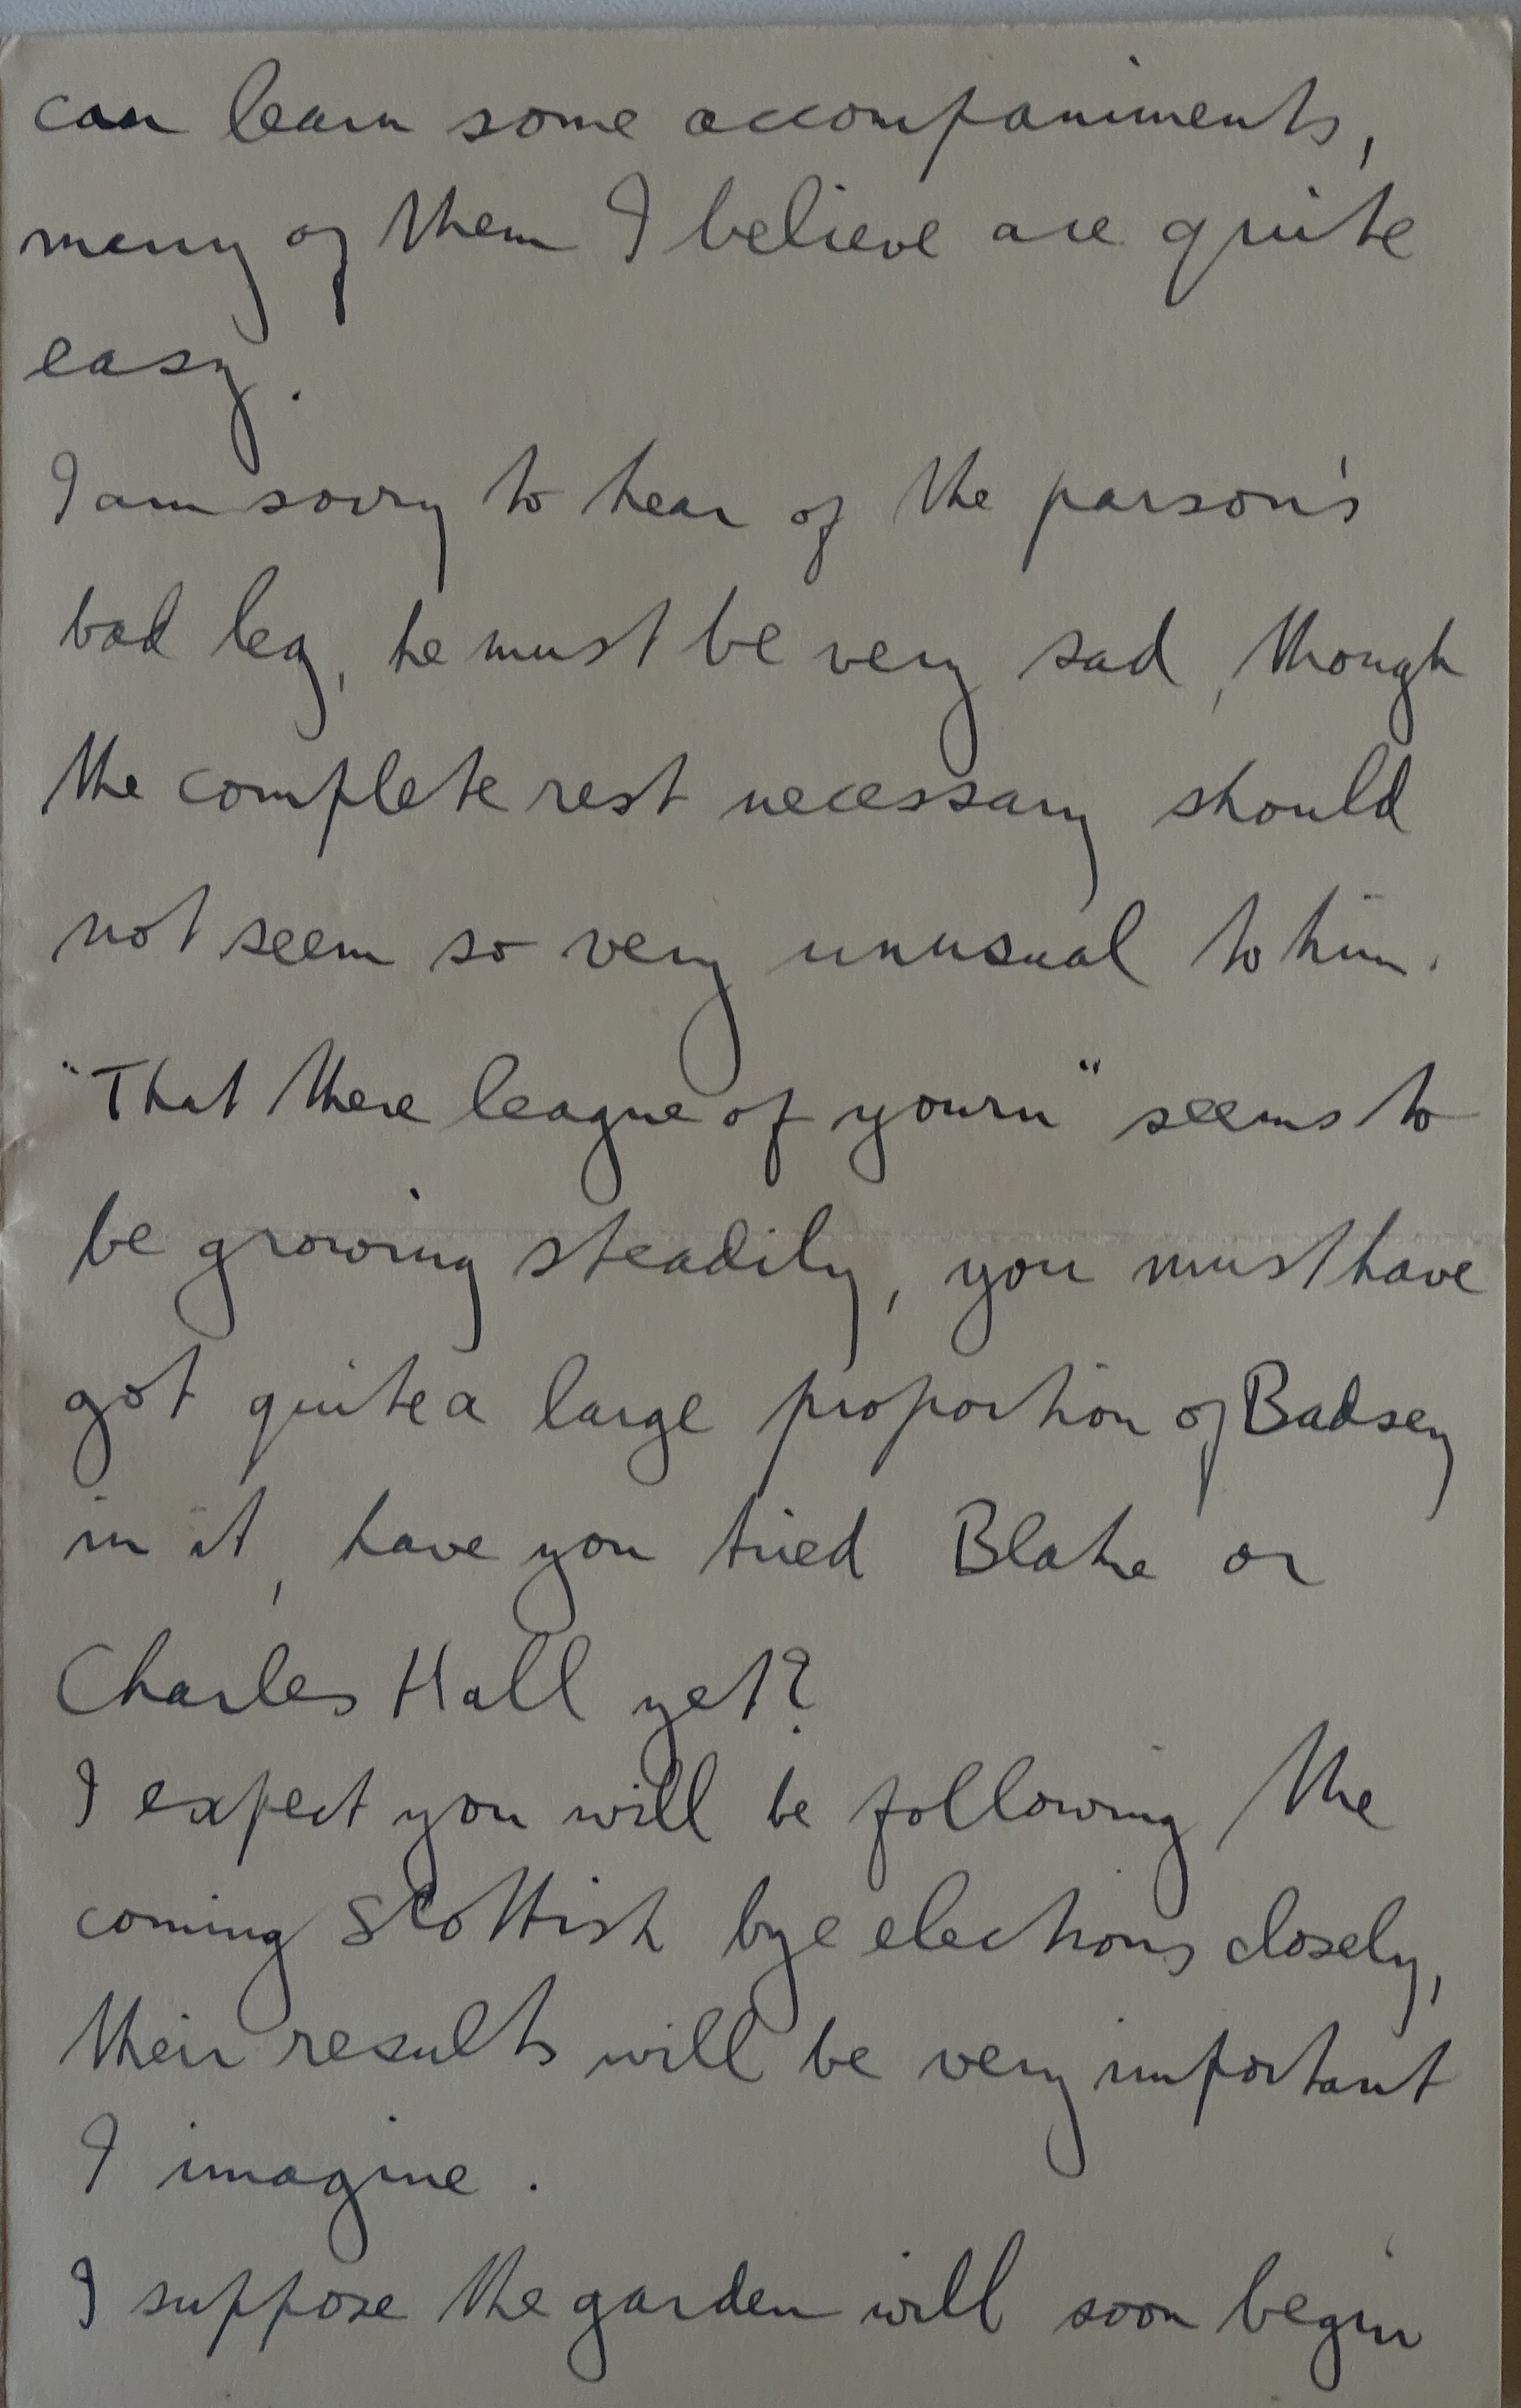 can learn some accompaniments,
many of them I believe are quite
easy.
I am sorry to hear of the parson's
bad leg, he must be very sad, though
the complete rest necessary should
not seem so very unusual to him.
"That there league of yourn" seems to
be growing steadily, you must have
got quite a large proportion of Badsey
in it, have you tried Blake or
Charles Hall yet?
I expect you will be following the
coming Scottish bye elections closely,
their results will be very important
I imagine.
I suppose the garden will soon begin